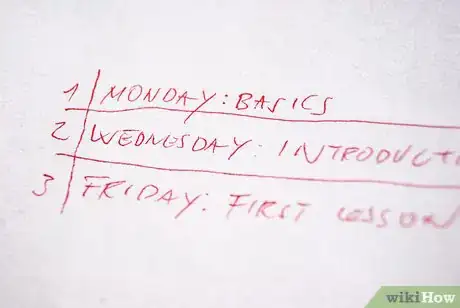 1 MONDAY: BASICS
2 WEDNESDAY: INTRODUCTI
3 FRIDAY: FIRST LESSON
wikiHow